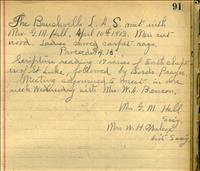 91
The Bruceville L.A.S. met with
Mrs. G. M. Hall, April 10th 1913. Men cut
wood. Ladies sewed carpet rags.
Proceeds 9.15
Scripture reading 17 verses of Tenth chapter
of St Luke, followed by Lord's Prayer.
Meeting adjourned to meet in one
week Wednesday with Mrs. W. A. Benson.
Mrs G. M. Hall
Secy.
Mrs W. H.
Secy